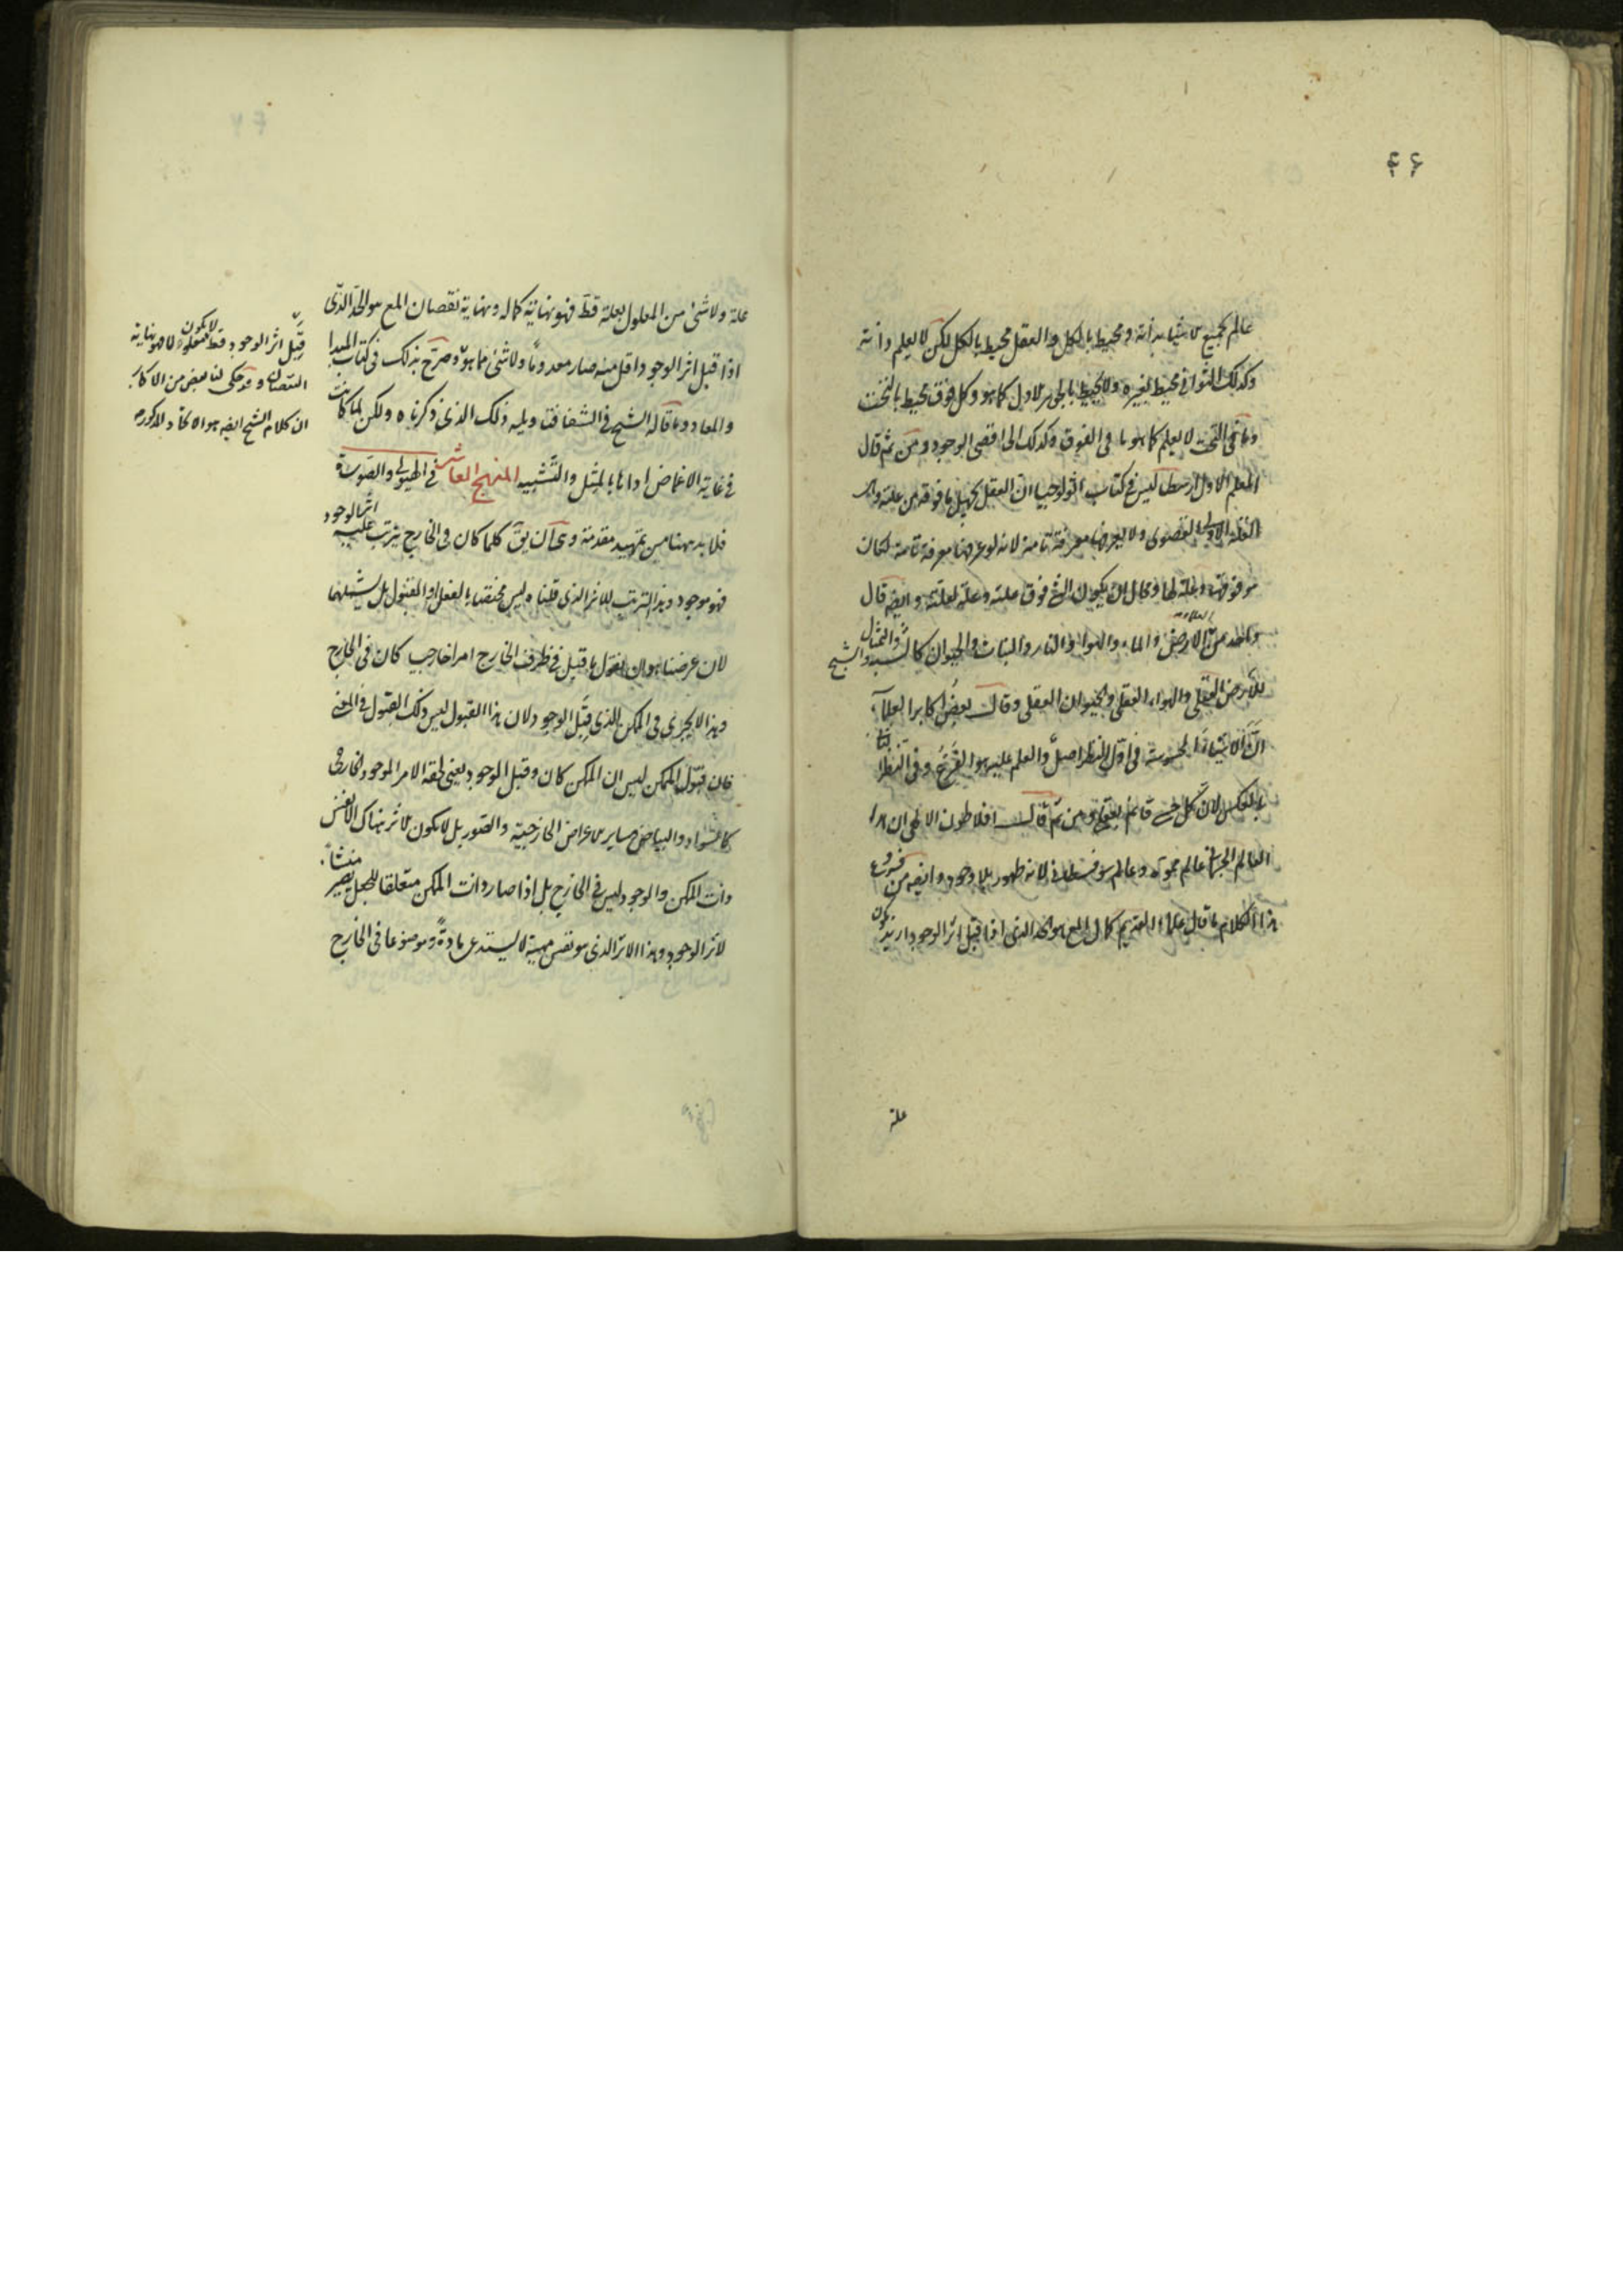 ۴۶
عالم بجميع الاشياء بذاته ومحيط بالكل والعقل محيط بالكل لكن لا يعلم ذاته
وكذلك الثوانى محيط بغيره ولا يحيط بالجوهر الاول كما هو وكل فوق محيط بالتحت
وما فى التحت لا يعلم كما هو ما فى الفوق وكذلك الى اقصى الوجود ومن ثم قال
المعلم الاول ارسطاليس فى كتاب اثولوجيا ان العقل يجهل ما فوقه من علته
العلة الاولى القصوى ولا يعرفها معرفة تامة لانه لو عرفها معرفة تامة لكان
هو فوقها وعلة لها ومحال ان يكون الشئ فوق علته وعلة لعلته وايضا قال
واحد من الارض والماء والهواء والنار والنبات والحيوان كالسيد والشبح
والتمثال
للارض العقلى والهواء العقلى والحيوان العقلى وقال بعض اكابر العلماء
ان الاشياء المحسوسة فى اول النظر اصل والعلم عليه هو الفرع وفى النظر
بالعكس لان كل حسى قائم بعقلى ومن ثم قال افلاطون الالهى ان هذا
العالم الجسمانى عالم مموه وعالم سوفسطائى لانه ظهور بلا وجود وايضا من فروع
هذا الكلام ما قال علماء القديم كمال المع هو الحد الذى اذا قبل اثر الوجود ازيد يكون
علة
علة ولا شئ من المعلول بعلة قط فهو نهاية كماله ونهاية نقصان المع هو الحد الذى
اذا قبل اثر الوجود اقل منه صار معدوما ولا شئ ما هو وصرح بذلك فى كتاب المبدا
والمعاد وما قاله الشيخ فى الشفا فتاويله ذلك الذى ذكرناه ولكن لما كانت
فى غاية الاغماض اداها بالمثل والتشبيه المنهج العاشر فى الهيولى والصورة
فلا بد ههنا من تمهيد مقدمة وهى ان يق كلما كان فى الخارج يترتب عليه اثر الوجود
فهو موجود وهذا الترتب للاثر الذى قلناه ليس مختصا بالفعل او القبول بل يشملهما
لان غرضنا هو ان نقول ما قبل فى ظرف الخارج امرا خارجيا كان فى الخارج
وهذا لا يجرى فى الممكن الذى قبل الوجود لان هذا القبول ليس ذلك القبول فى المعنى
فان قبول الممكن ليس ان الممكن كان وقبل الوجود يعنى لحقه الامر الموجود الخارجى
كالسواد والبياض وساير الاعراض الخارجية والصور بل لا يكون الاثر هناك الا نفس
ذات الممكن والوجود ليس فى الخارج بل اذا صار ذات الممكن متعلقا للجعل يصير منشأ
لاثر الوجود وهذا الاثر الذى هو نفس مهية لا يستدعى مادة وموضوعا فى الخارج
قبل اثر الوجود قط لا يكون معلولا فهو نهاية
النقصان وقد حكى لنا بعض من الاكابر
ان كلام الشيخ ايضا هو الاتحاد المذكور